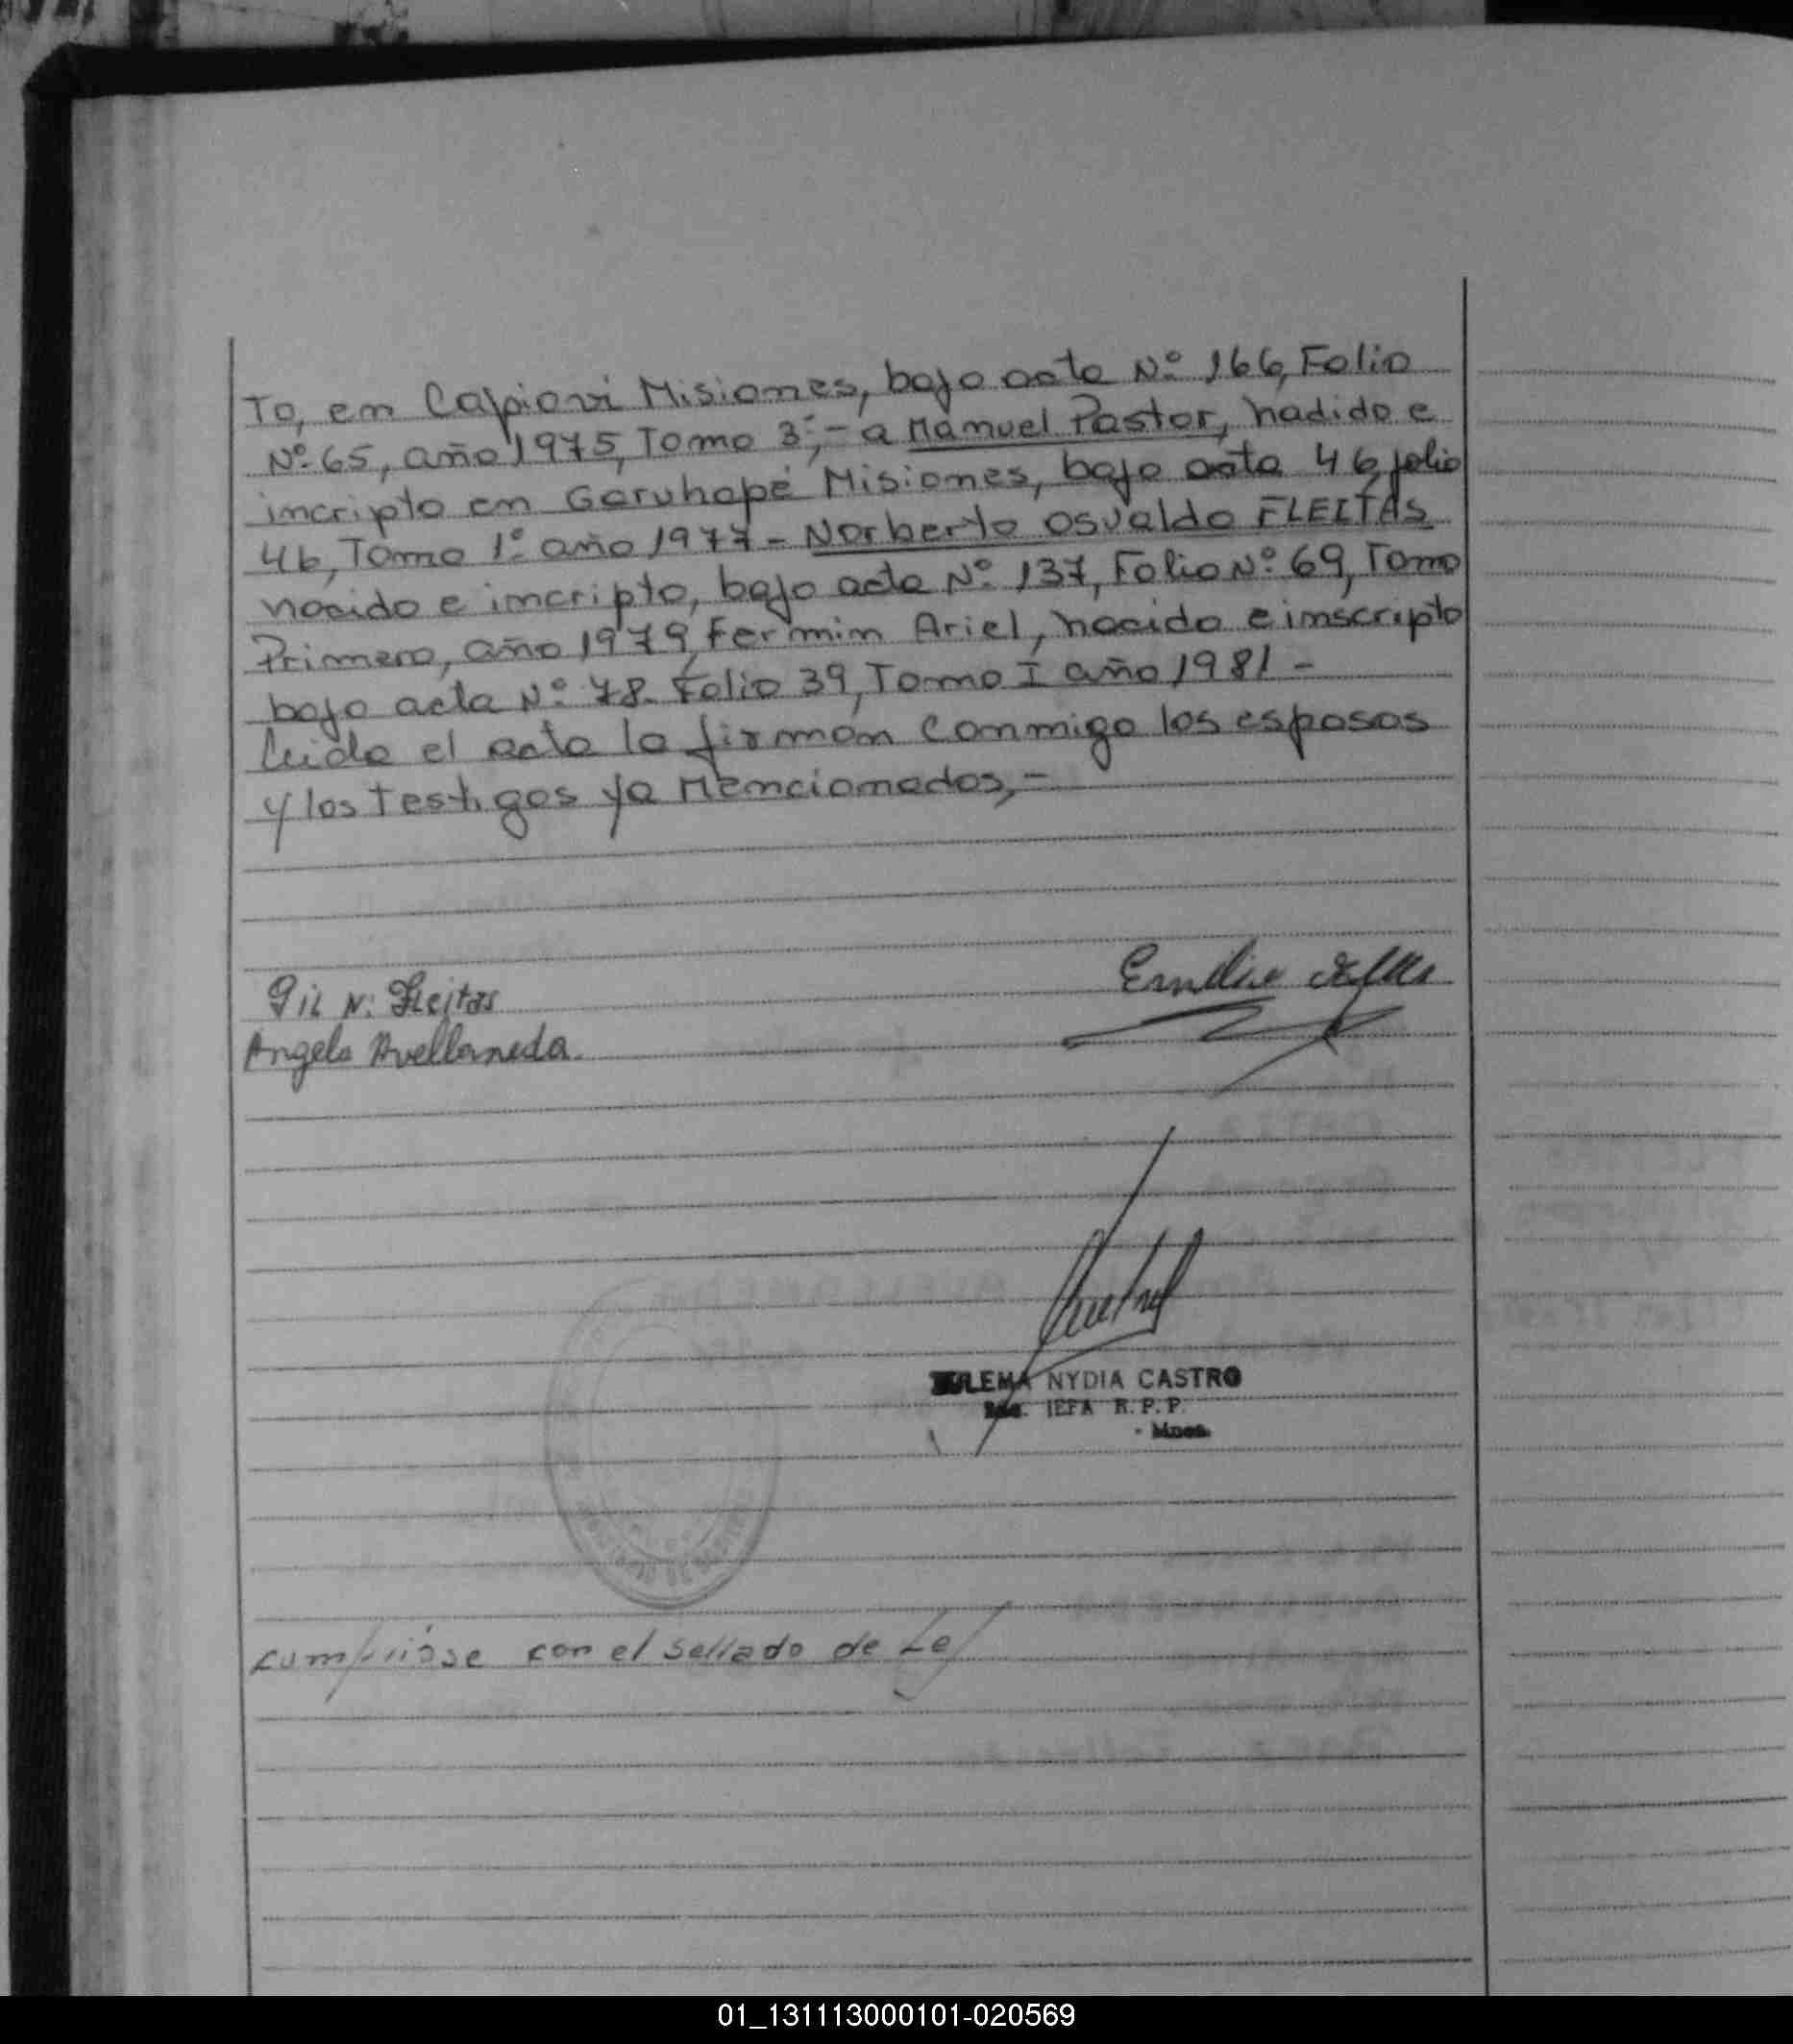 To, en Capiovi Misiones, bajo acta Nº 166, Folio
Nº 65, año 1975, Tomo 3º,- a Manuel Pastor, nadido e
incripto en Garuhapé Misiones, bajo acta 46, folio
46, Tomo 1º año 1977 - Norberto Osvaldo FLEITAS
nacido e incripto, bajo acta Nº 137, Folio Nº 69, Tomo
Primero, año 1979, Fermin Ariel, nacido e inscripto
bajo acta Nº 78 Folio 39, Tomo I año 1981 -
leida el acta la firman conmigo los esposos
y los testigos ya Mencionados,-
Gil N. Fleitas
Emilio
Angela Avellaneda.
NYDIA CASTRO
JEFA R.P.P.
- Mnes.
cumpliose con el sellado de Ley
01_131113000101-020569